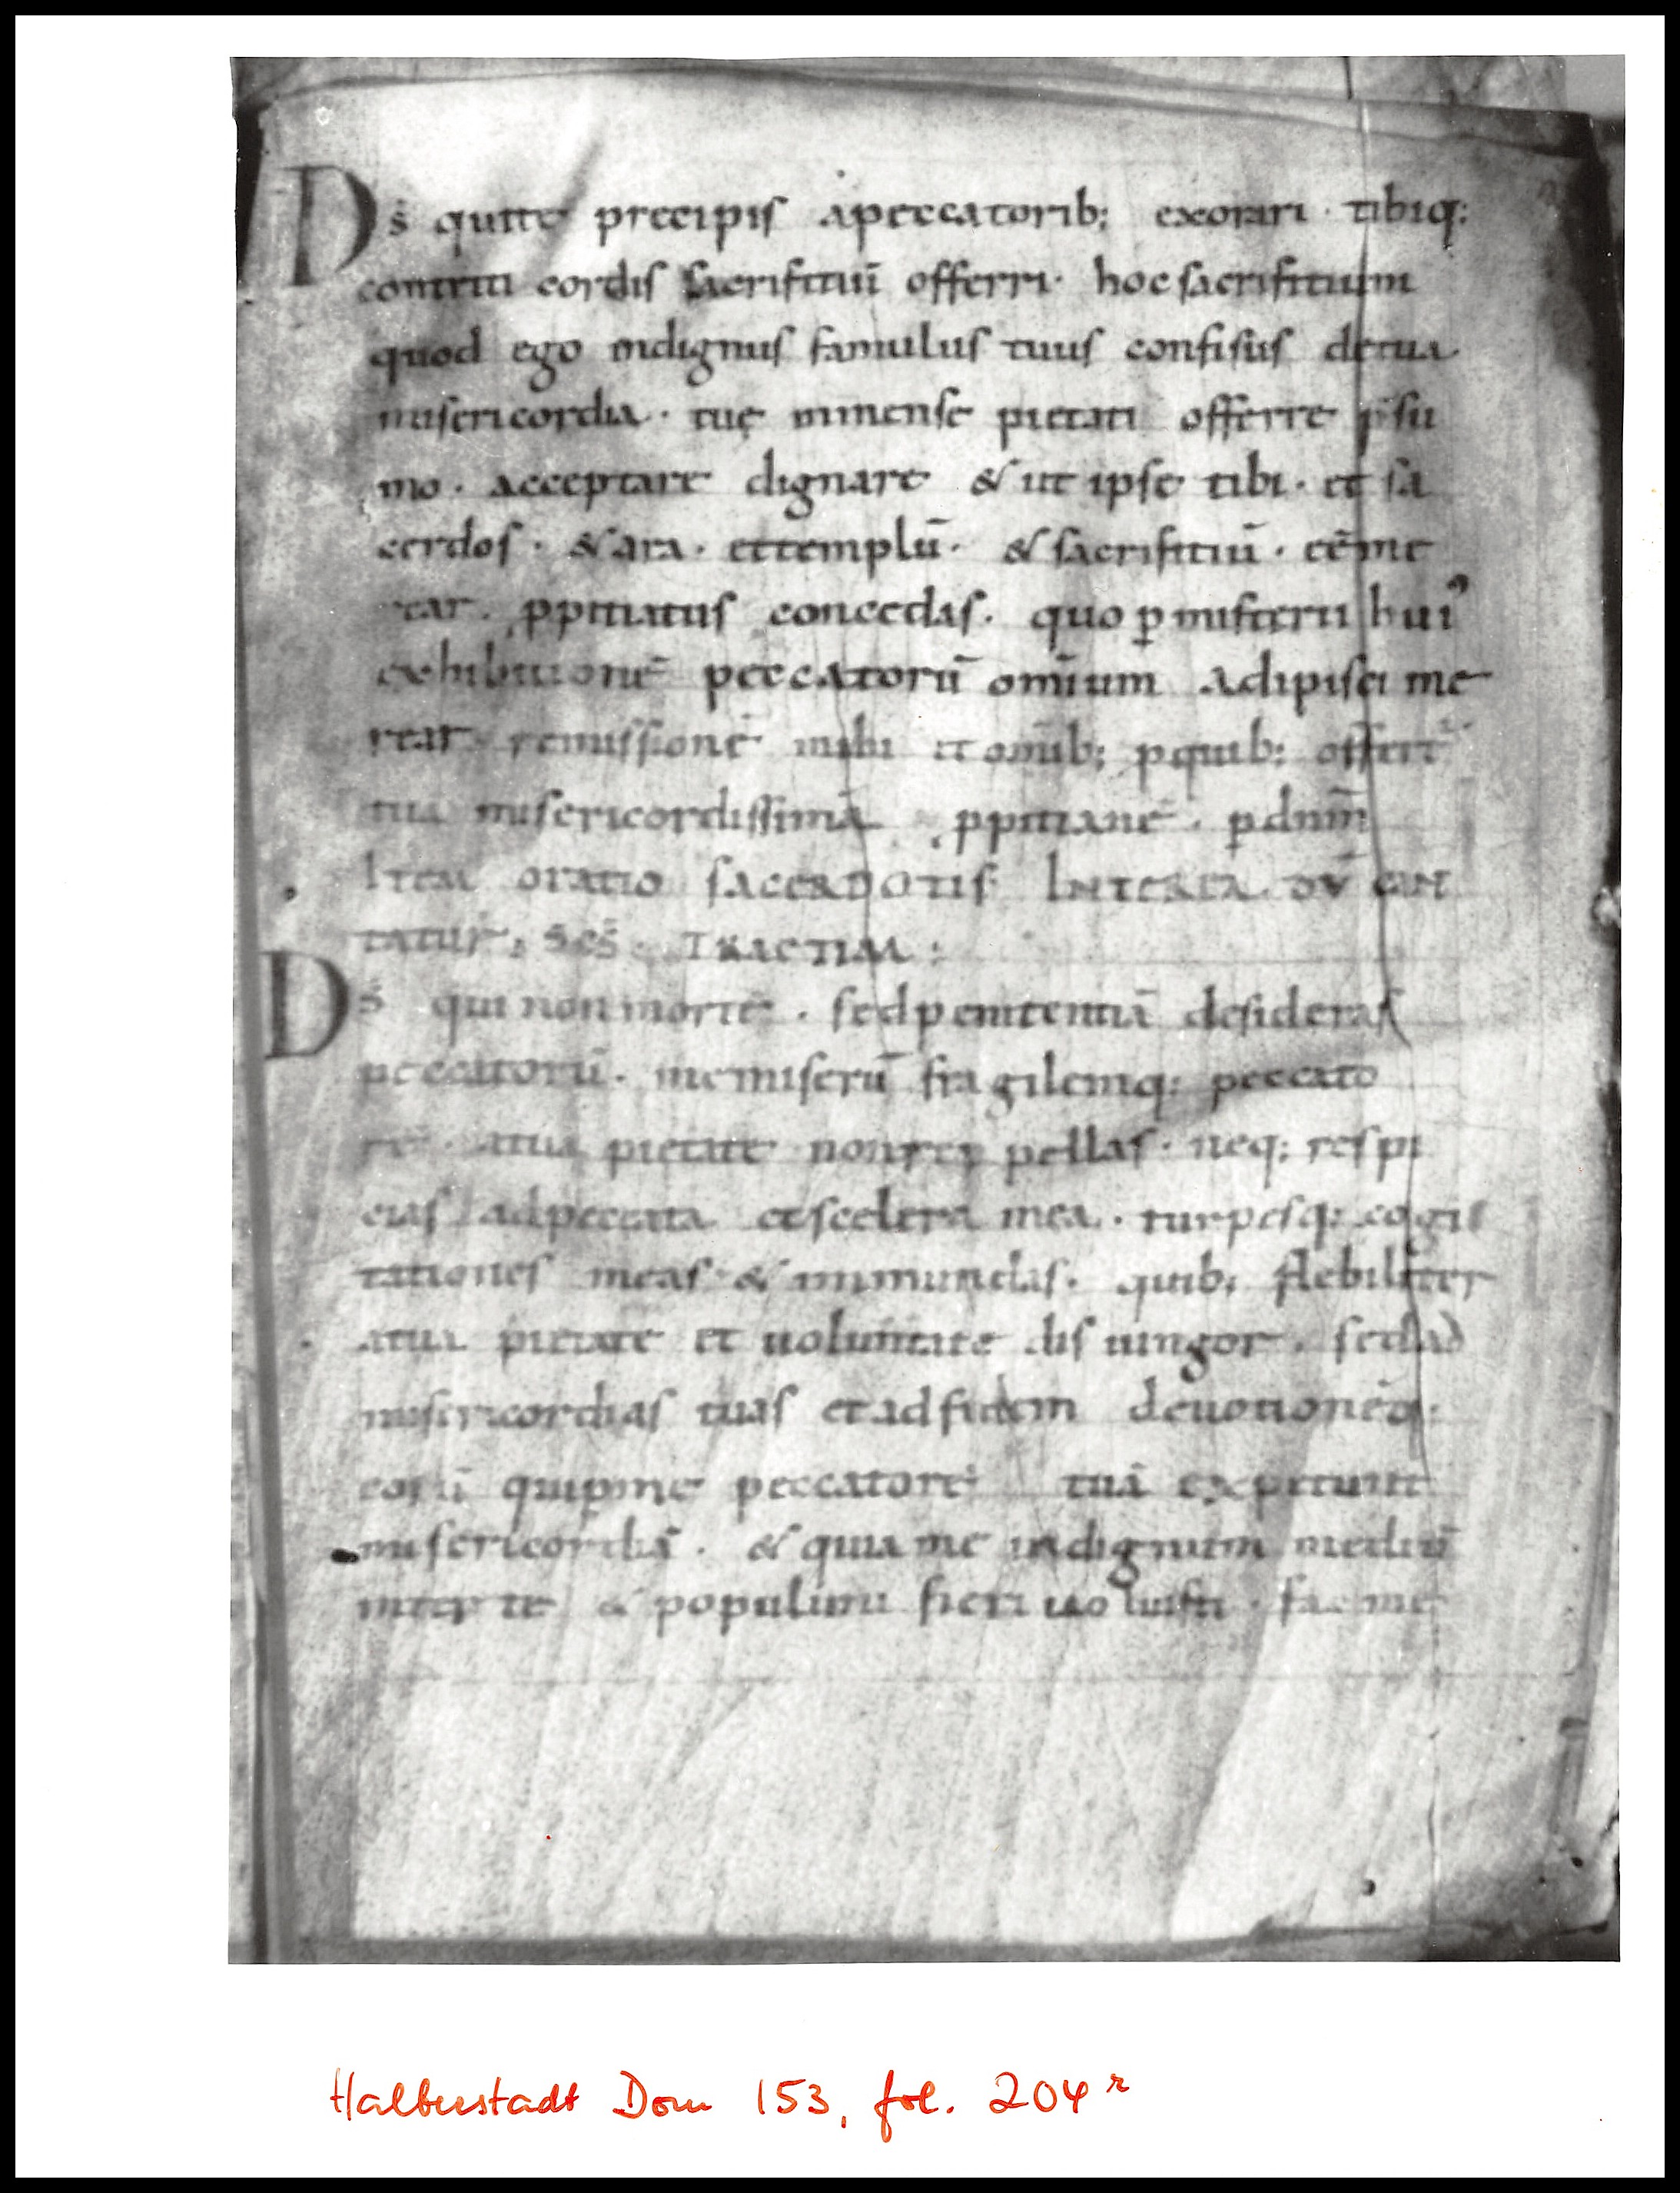 Ds̄ qui te precipis apeccatorib; exorari · tibiq;
contriti cordis sacrifitiū offerri · hoc sacrifitium
quod ego indignus famulus tuus confisus de tua
misericordia · tuę inmense pietati offerre p̄su
mo · acceptare dignare & ut ipse tibi · et sa
cerdos · & ara · et templū · & sacrifitiū · eē me
rear · ꝓpitiatus concedas · quo ꝑ misterii hui᾽
exhibitionē peccatorū omīum adipisci me
rear remissionē mihi et omīb; ꝓ quib; offert᷑
tua misericordissima ꝓpitianē · ꝑ dnm̄
Item oratio sacerdotis Interea dū can
tatur, Scs̄ · tractim :
Ds̄ qui non mortē · sed penitentiā desideras
peccatorū · me miserū fragilemq; peccato
rē · a tua pietate non rep pellas · neq; respi
cias ad peccata et scelera mea · turpesq; cogi
tationes meas & inmundas · quib; flebiliter
a tua pietate et uoluntate disiungor · sed ad
misericordias tuas et ad fidem deuotionēq;
eorū qui ꝑ me peccatorē tuā expetunt
misericordiā · & quia me indignum mediū
inter te & populum fieri uoluisti · fac me
Halberstadt Dom 153, fol. 204ʳ